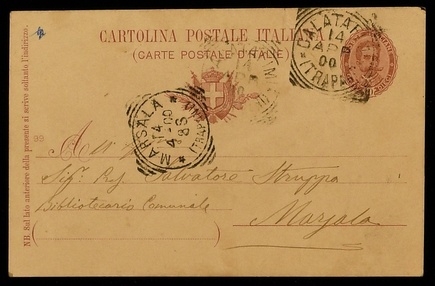 CARTOLINA POSTALE ITALIANA
(CARTE POSTALE D'ITALIE)
CALATAF
14
APR
00
(TRAPA
MARSALA
14
4-00
8S
(TRAPANI)
NB. Sul lato anteriore della presente si scrive soltanto l'indirizzo.
99
A
Sigr. Prof. Salvatore Struppa
Bibliotecario Comunale
Marsala